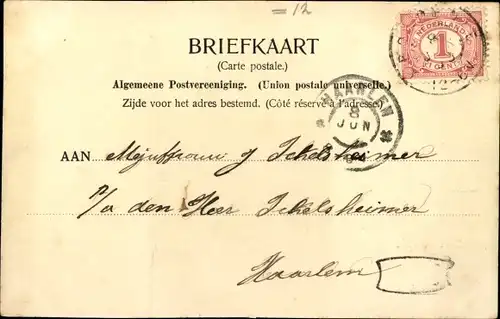 =12
BRIEFKAART
(Carte postale.)
Algemeene Postvereeniging. (Union postale universelle.)
Zijde voor het adres bestemd. (Côté réservé à l'adresse.)
NEDERLAND
1
CENT
HAARLEM
8 JUN
AAN Mejufvrouw J Ickelsheimer
p/a den Heer Ickelsheimer
Haarlem